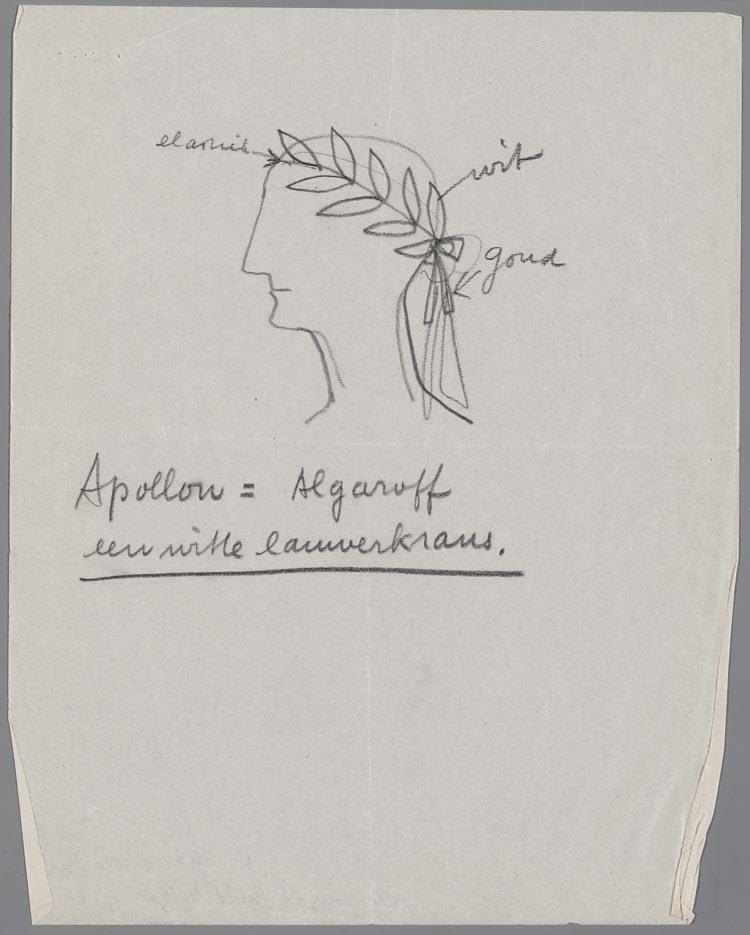 wit
goud
Apollon = Algaroff
een witte lauwerkrans.